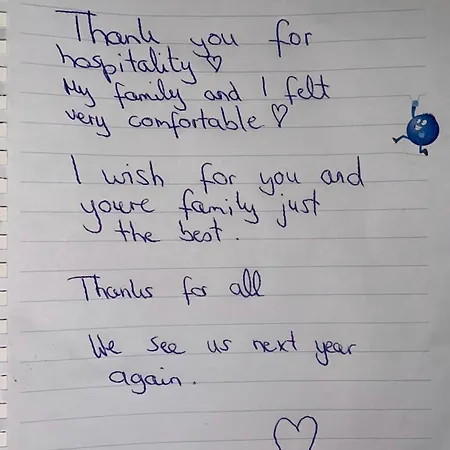 Thank you for
hospitality ♡
My family and I felt
very comfortable ♡
I wish for you and
youre family just
the best.
Thanks for all
We see us next year
again.
♡